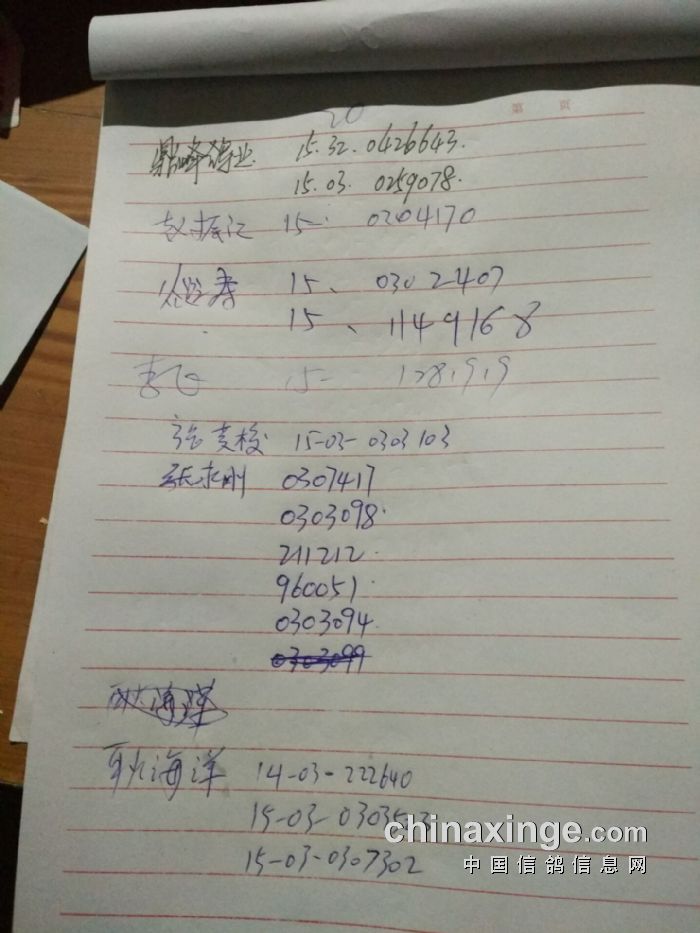 第 页
20
鼎峰鸽业 15.32.0426643.
15.03. 0259078.
赵振江 15. 0204170
15、0302407
15、1149168
李飞 15- 128,919
15-03-0303103
张永刚 0307417
0303098.
211212.
960051.
0303094.
0303099
耿海洋
耿海洋 14-03-222640
15-03-
15-03-0307302
chinaxinge.com
中国信鸽信息网